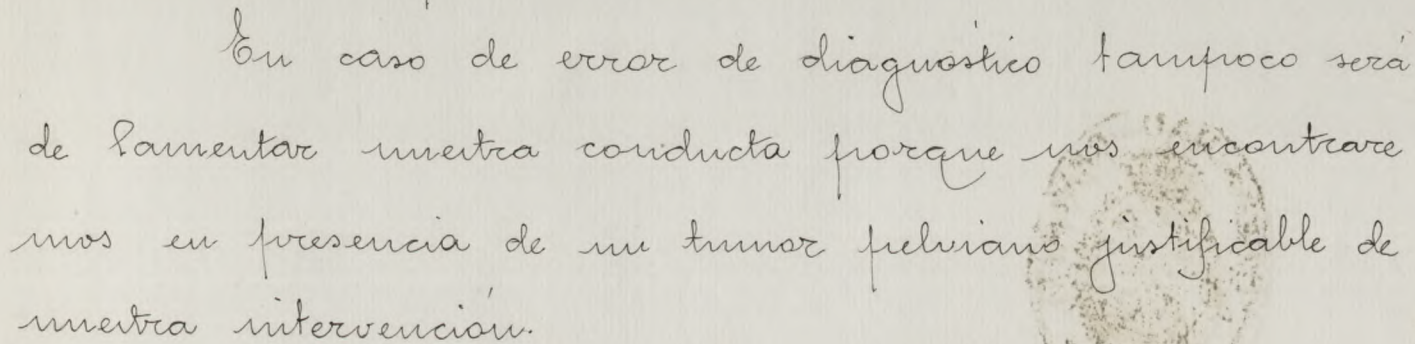 En caso de error de diagnóstico tampoco será
de lamentar nuestra conducta porque nos encontrare
mos en presencia de un tumor pelviano justificable de
nuestra intervención.